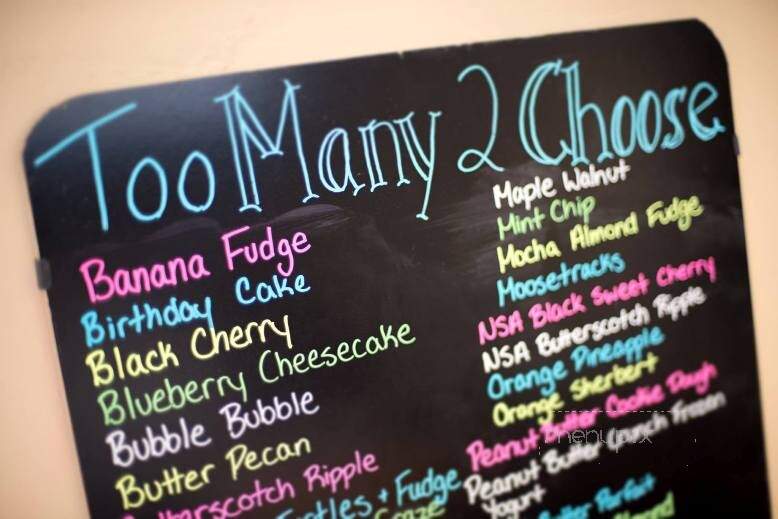 Too Many 2 Choose
Banana Fudge
Birthday Cake
Black Cherry
Blueberry Cheesecake
Bubble Bubble
Butter Pecan
Butterscotch Ripple
Turtles + Fudge
Craze
Maple Walnut
Mint Chip
Mocha Almond Fudge
Moosetracks
NSA Black Sweet Cherry
NSA Butterscotch Ripple
Orange Pineapple
Orange Sherbert
Peanut Butter Cookie Dough
Peanut Butter Crunch Frozen
Yogurt
Butter Parfait
Almond
menupix